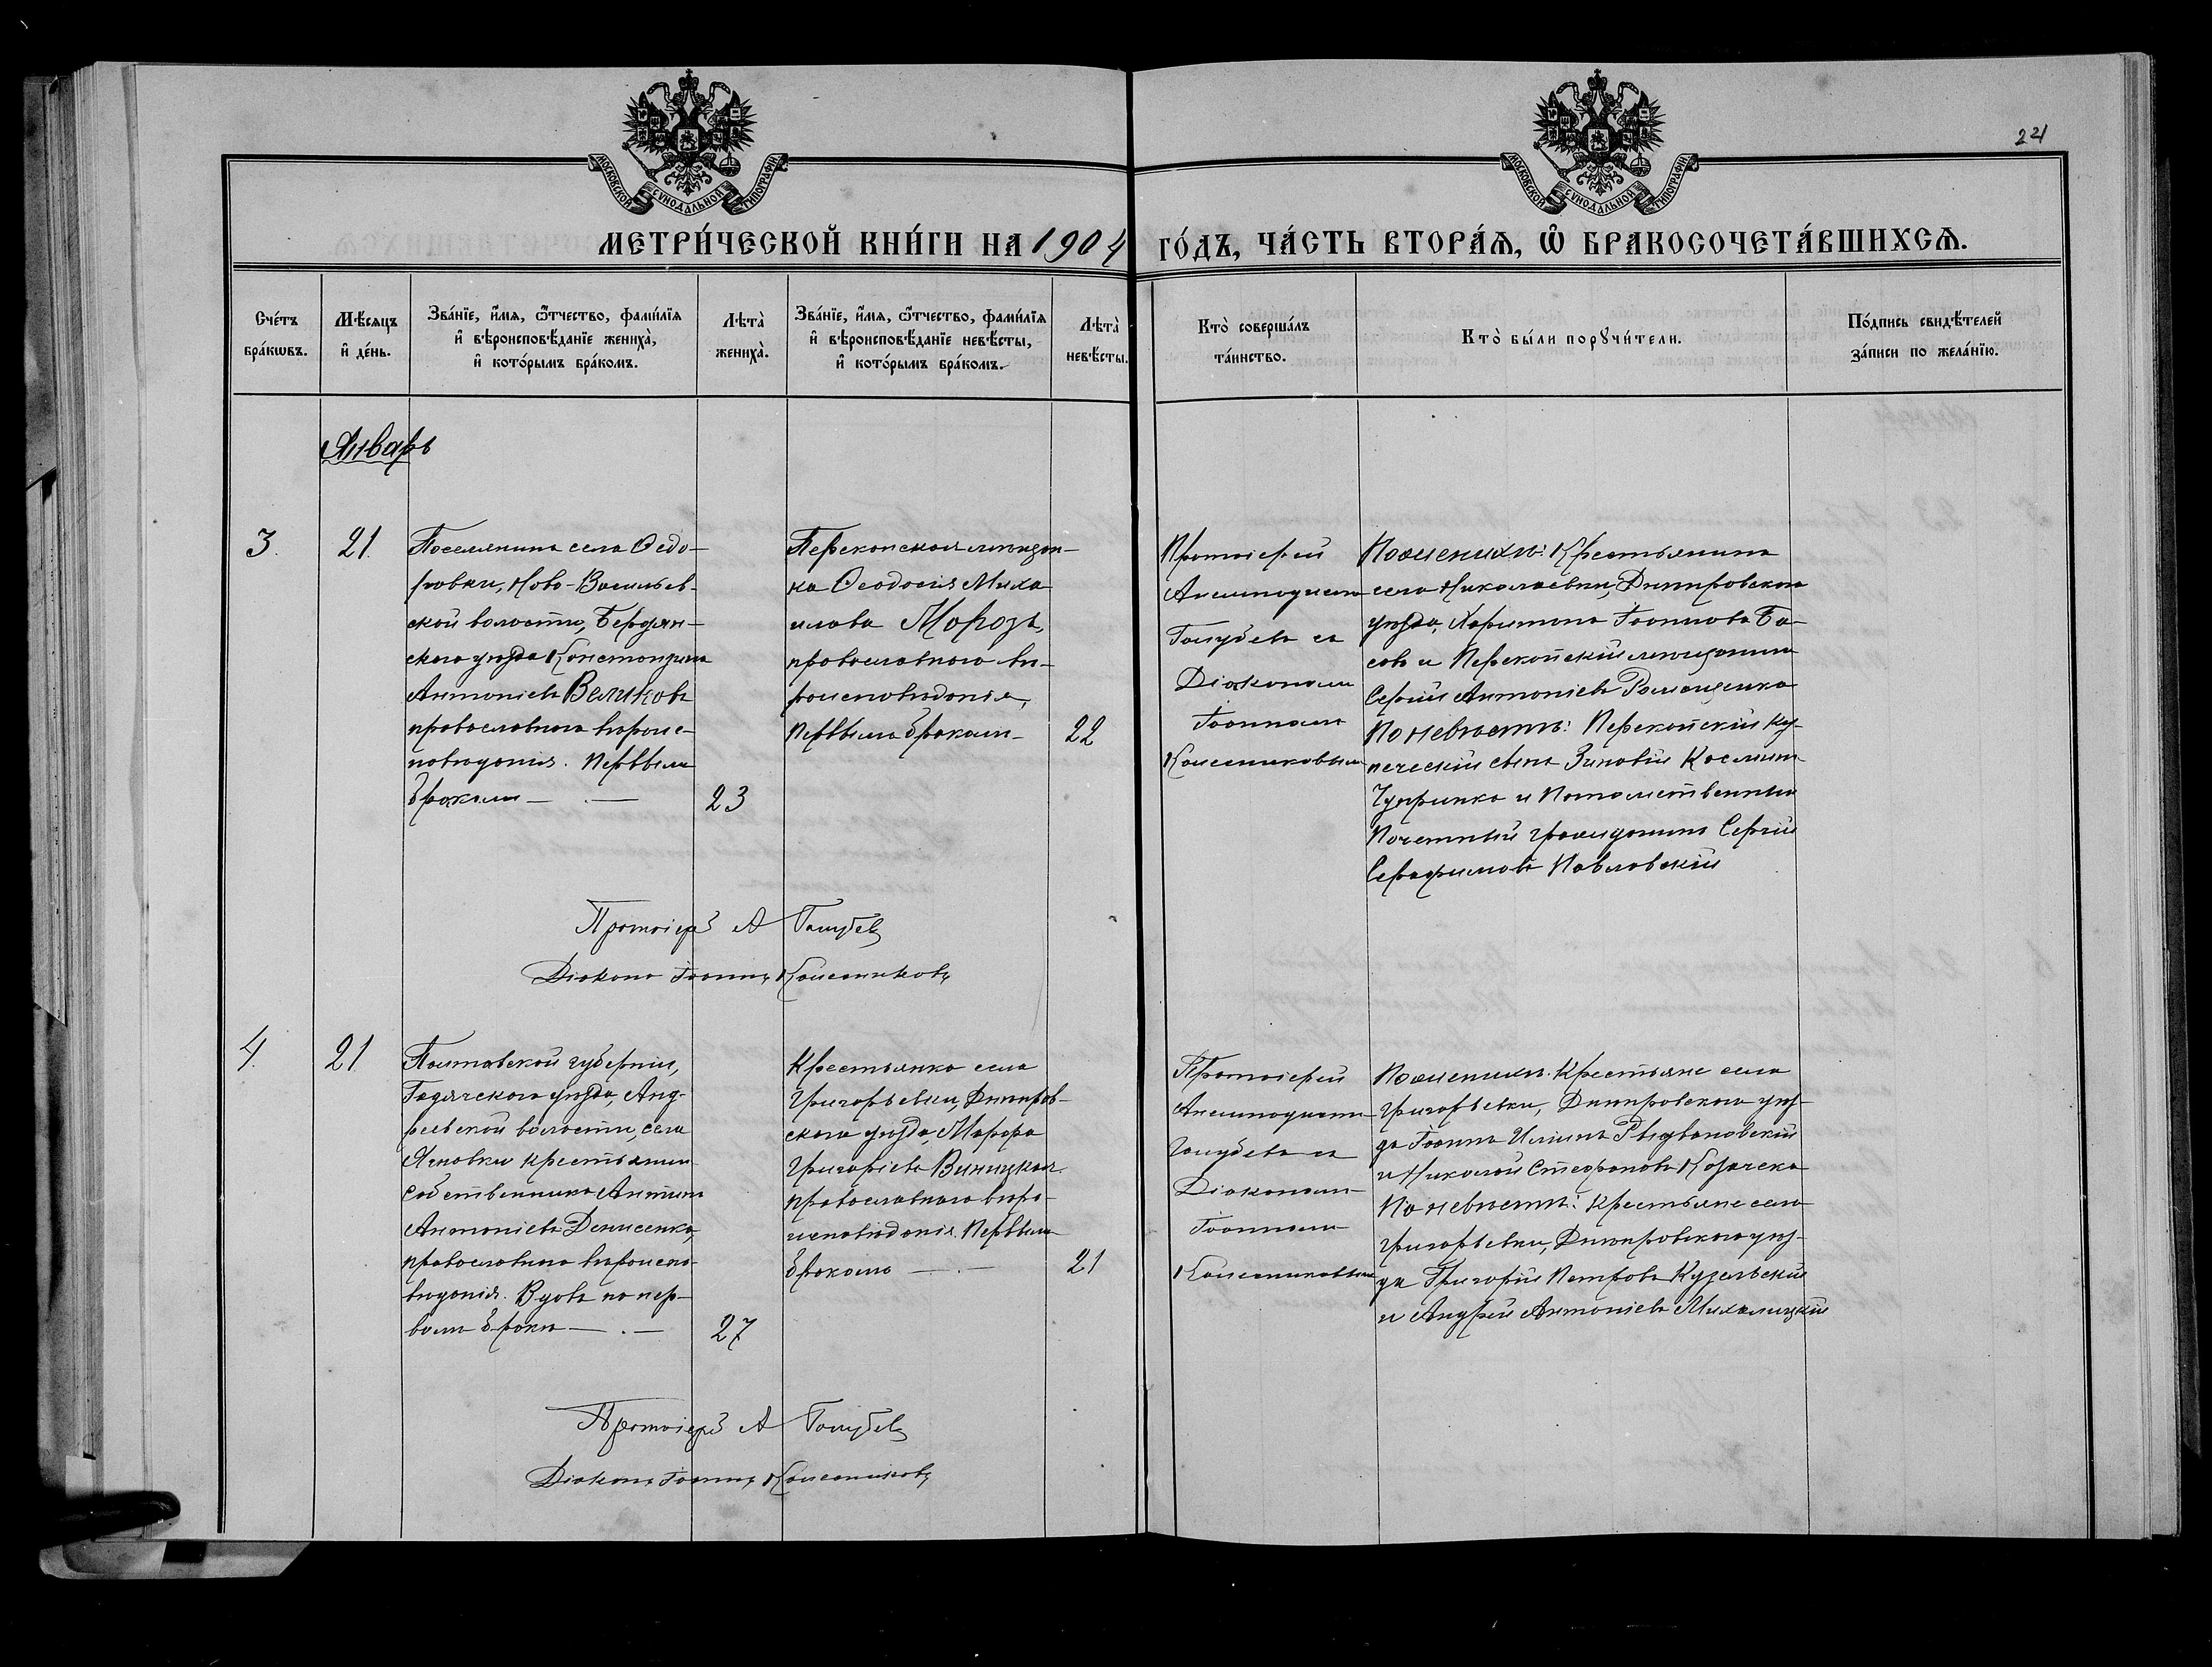 221
МОСКОВСКОЙ СѴНОДАЛЬНОЙ ТИПОГРАФІИ
МОСКОВСКОЙ СѴНОДАЛЬНОЙ ТИПОГРАФІИ
МЕТРИ́ЧЕСКОЙ КНИ́ГИ НА 1904 ГО́ДЪ, ЧА́СТЬ ВТОРА́Ѧ, Ѽ БРАКОСОЧЕТА́ВШИХСѦ.
Сче́тъ
бра́кѡвъ.
Мѣ́сяцъ
и҆ де́нь.
Зва́нїе, и҆́мѧ, ѻ҆́тчество, фами́лїѧ
и҆ вѣроисповѣ́данїе жениха̀,
и҆ кото́рымъ бра́комъ.
Лѣта̀
жениха̀.
Зва́нїе, и҆́мѧ, ѻ҆́тчество, фами́лїѧ
и҆ вѣроисповѣ́данїе невѣ́сты,
и҆ кото́рымъ бра́комъ.
Лѣта̀
невѣ́сты.
Кто̀ соверша́лъ
та́инство.
Кто̀ бы́ли порꙋчи́тели.
По́дпись свидѣ́телей
за́писи по жела́нїю.
Январь
3.
21.
Поселянинъ села Ѳедо-
ровки, Ново-Васильев-
ской волости, Бердян-
скаго уѣзда Константинъ
Антоніевъ Великовъ
православнаго вѣроис-
повѣданія. Первымъ
бракомъ — . —
23
Перекопская мѣщан-
ка Ѳеодосія Миха
илова Морозъ,
православнаго вѣ-
роисповѣданія,
Первымъ бракомъ —
22
Протоіерей
Аннмподистъ
Голубевъ съ
Діакономъ
Іоанномъ
Колесниковымъ
По женихѣ: Крестьянинъ
села Николаевки, Днѣпровскаго
уѣзда, Харитонъ Іоанновъ Ба-
совъ и Перекопскій мѣщанинъ
Сергій Антоніевъ Романенко
По невѣстѣ: Перекопскій ку-
печескій сынъ Зиновій Космин
Чупринко и Потомственный
Почетный гражданинъ Сергій
Серафимовъ Павловскій
Протоіерей А Голубевъ
Діаконъ Іоаннъ Колесниковъ
4.
21
Полтавской губерніи,
Гадячскаго уѣзда, Анд-
реевской волости, села
Ячновки крестьянин
собственникъ Антипъ
Антоніевъ Денисенко,
православнаго вѣроиспо-
вѣданія. Вдовъ по пер-
вомъ бракѣ — . —
27
Крестьянка села
Григорьевки, Днѣпров-
скаго уѣзда, Марфа
Григоріева Виницкая
православнаго вѣро-
исповѣданія. Первымъ
бракомъ — . —
21
Протоіерей
Аннмподистъ
Голубевъ съ
Діакономъ
Іоанномъ
Колесниковымъ
По женихѣ: Крестьяне села
Григорьевки, Днѣпровскаго уѣз-
да Іоаннъ Иліинъ Рѣдвановскій
и Николай Стефановъ Корячко
По невѣстѣ: Крестьяне села
Григорьевки, Днѣпровскаго уѣз-
да Григорій Петровъ Кузельскій
и Андрей Антоніевъ Михалицкій
Протоіерей А Голубевъ
Діаконъ Іоаннъ Колесниковъ